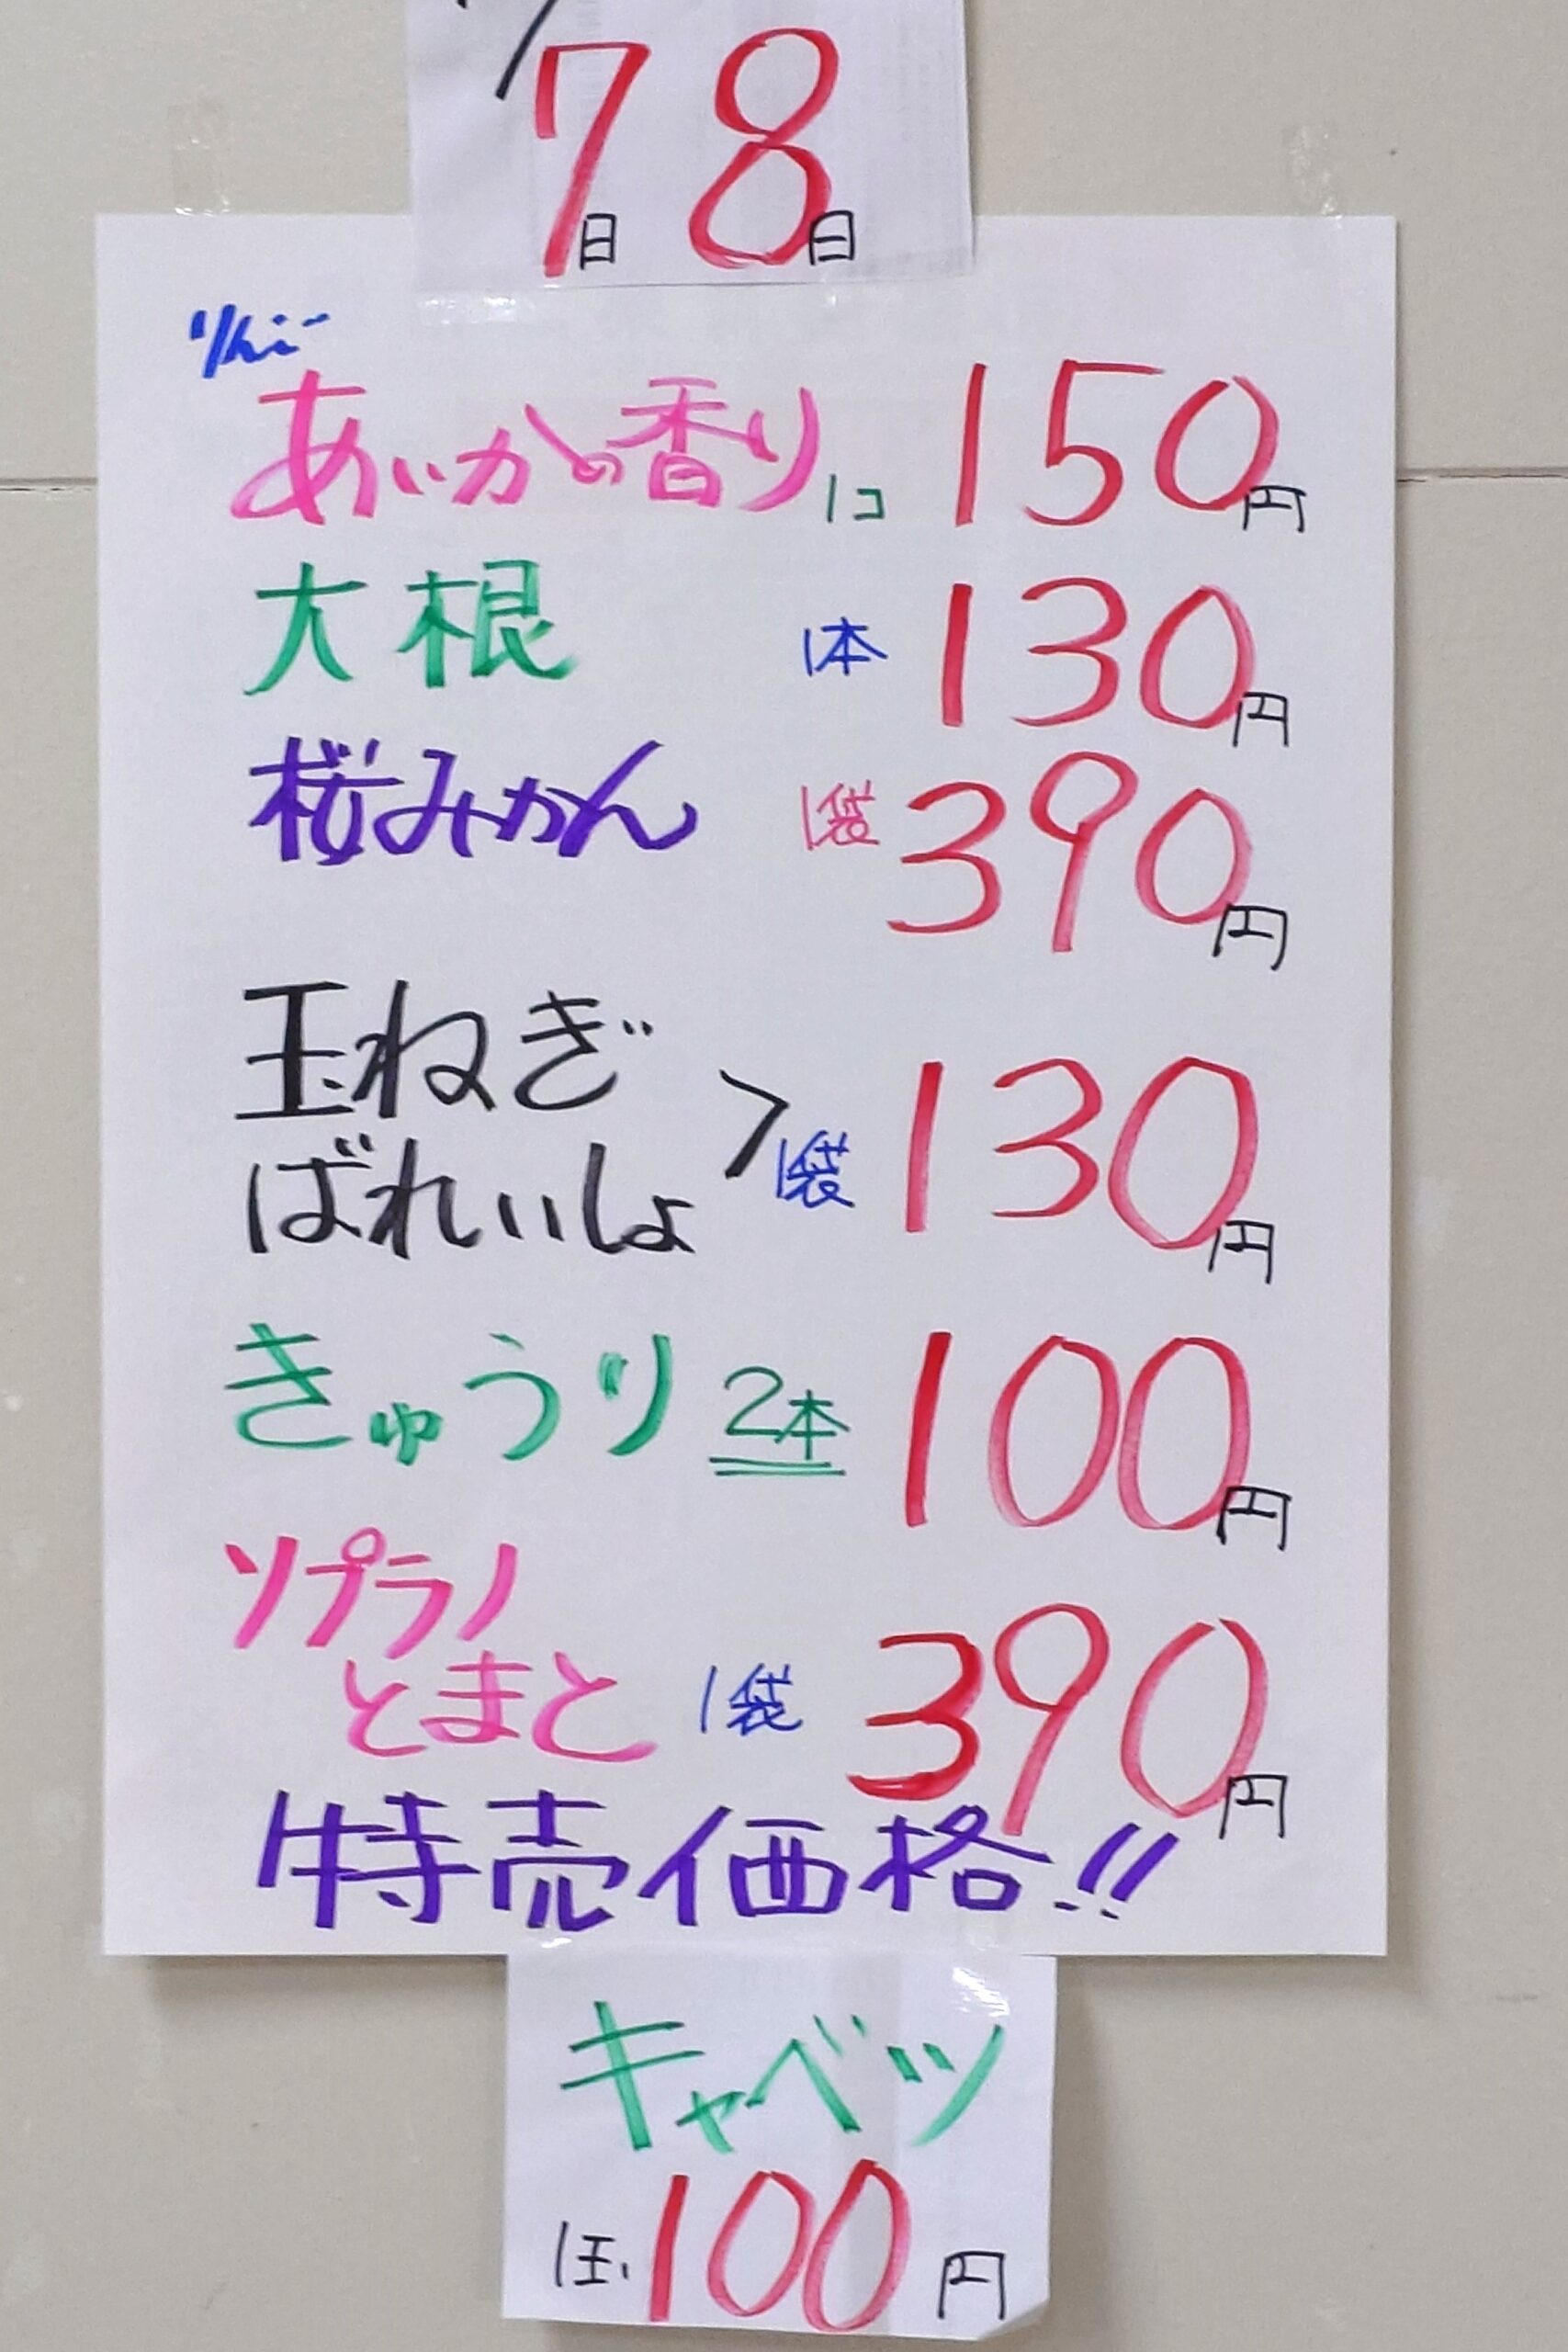 7日 8日
あいかの香り 1コ 150円
大根 1本 130円
桜みかん 1袋 390円
玉ねぎ
ばれいしょ > 1袋 130円
きゅうり 2本 100円
ソプラノ
とまと 1袋 390円
特売価格!!
キャベツ
1玉 100円